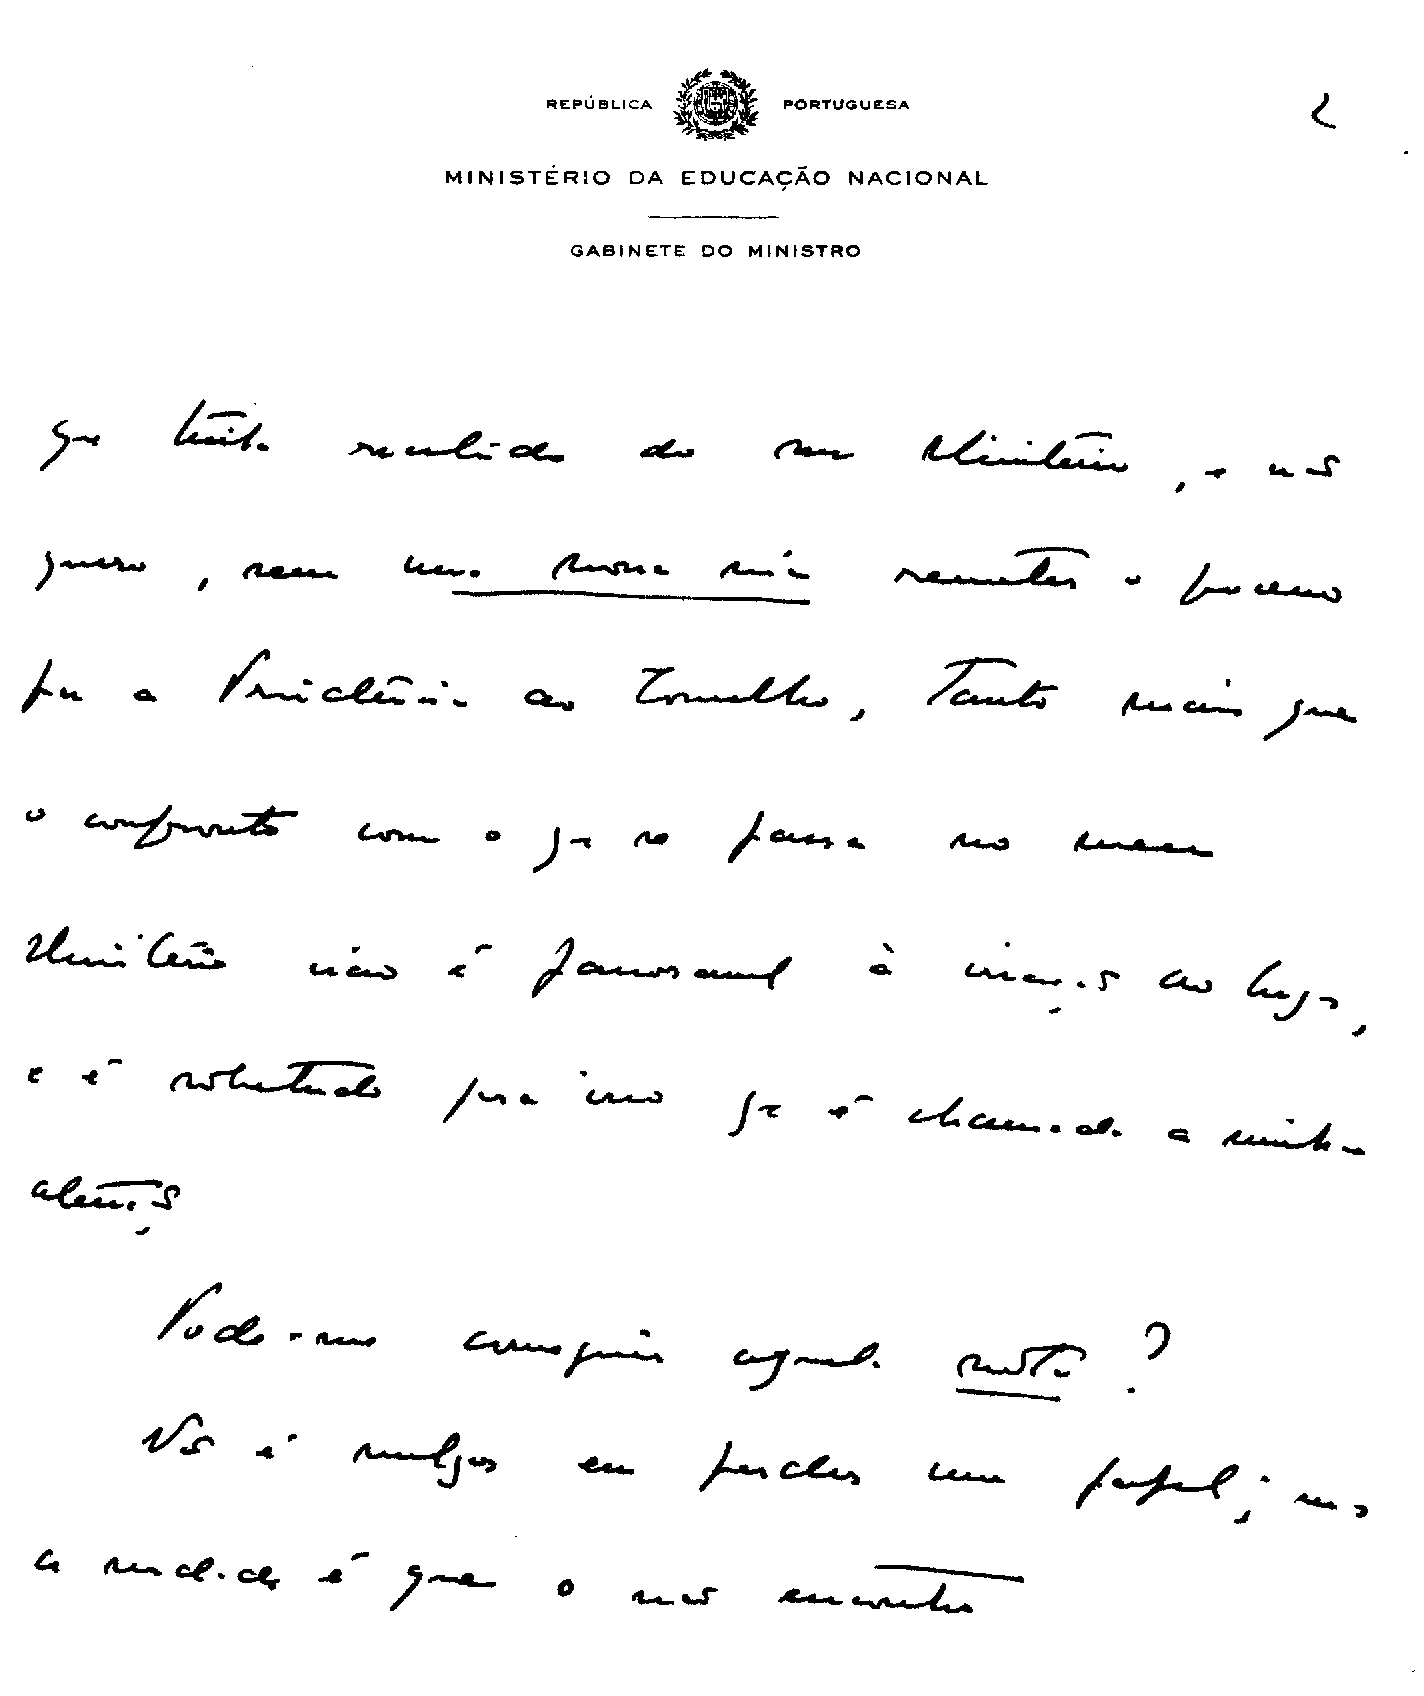 REPÚBLICA PORTUGUESA
2
MINISTÉRIO DA EDUCAÇÃO NACIONAL
GABINETE DO MINISTRO
que tinha recebido do seu Ministério, e não
quero, sem uma nova via remeter o processo
para a Presidência do Conselho, Tanto mais que
o confronto com o que se passa no meu
Ministério não é favorável à criação do lugar,
e é sobretudo para isso que é chamada a minha
atenção
Pode-me conseguir aquela nota?
Não é vulgar eu perder um papel; mas
a verdade é que o não encontro